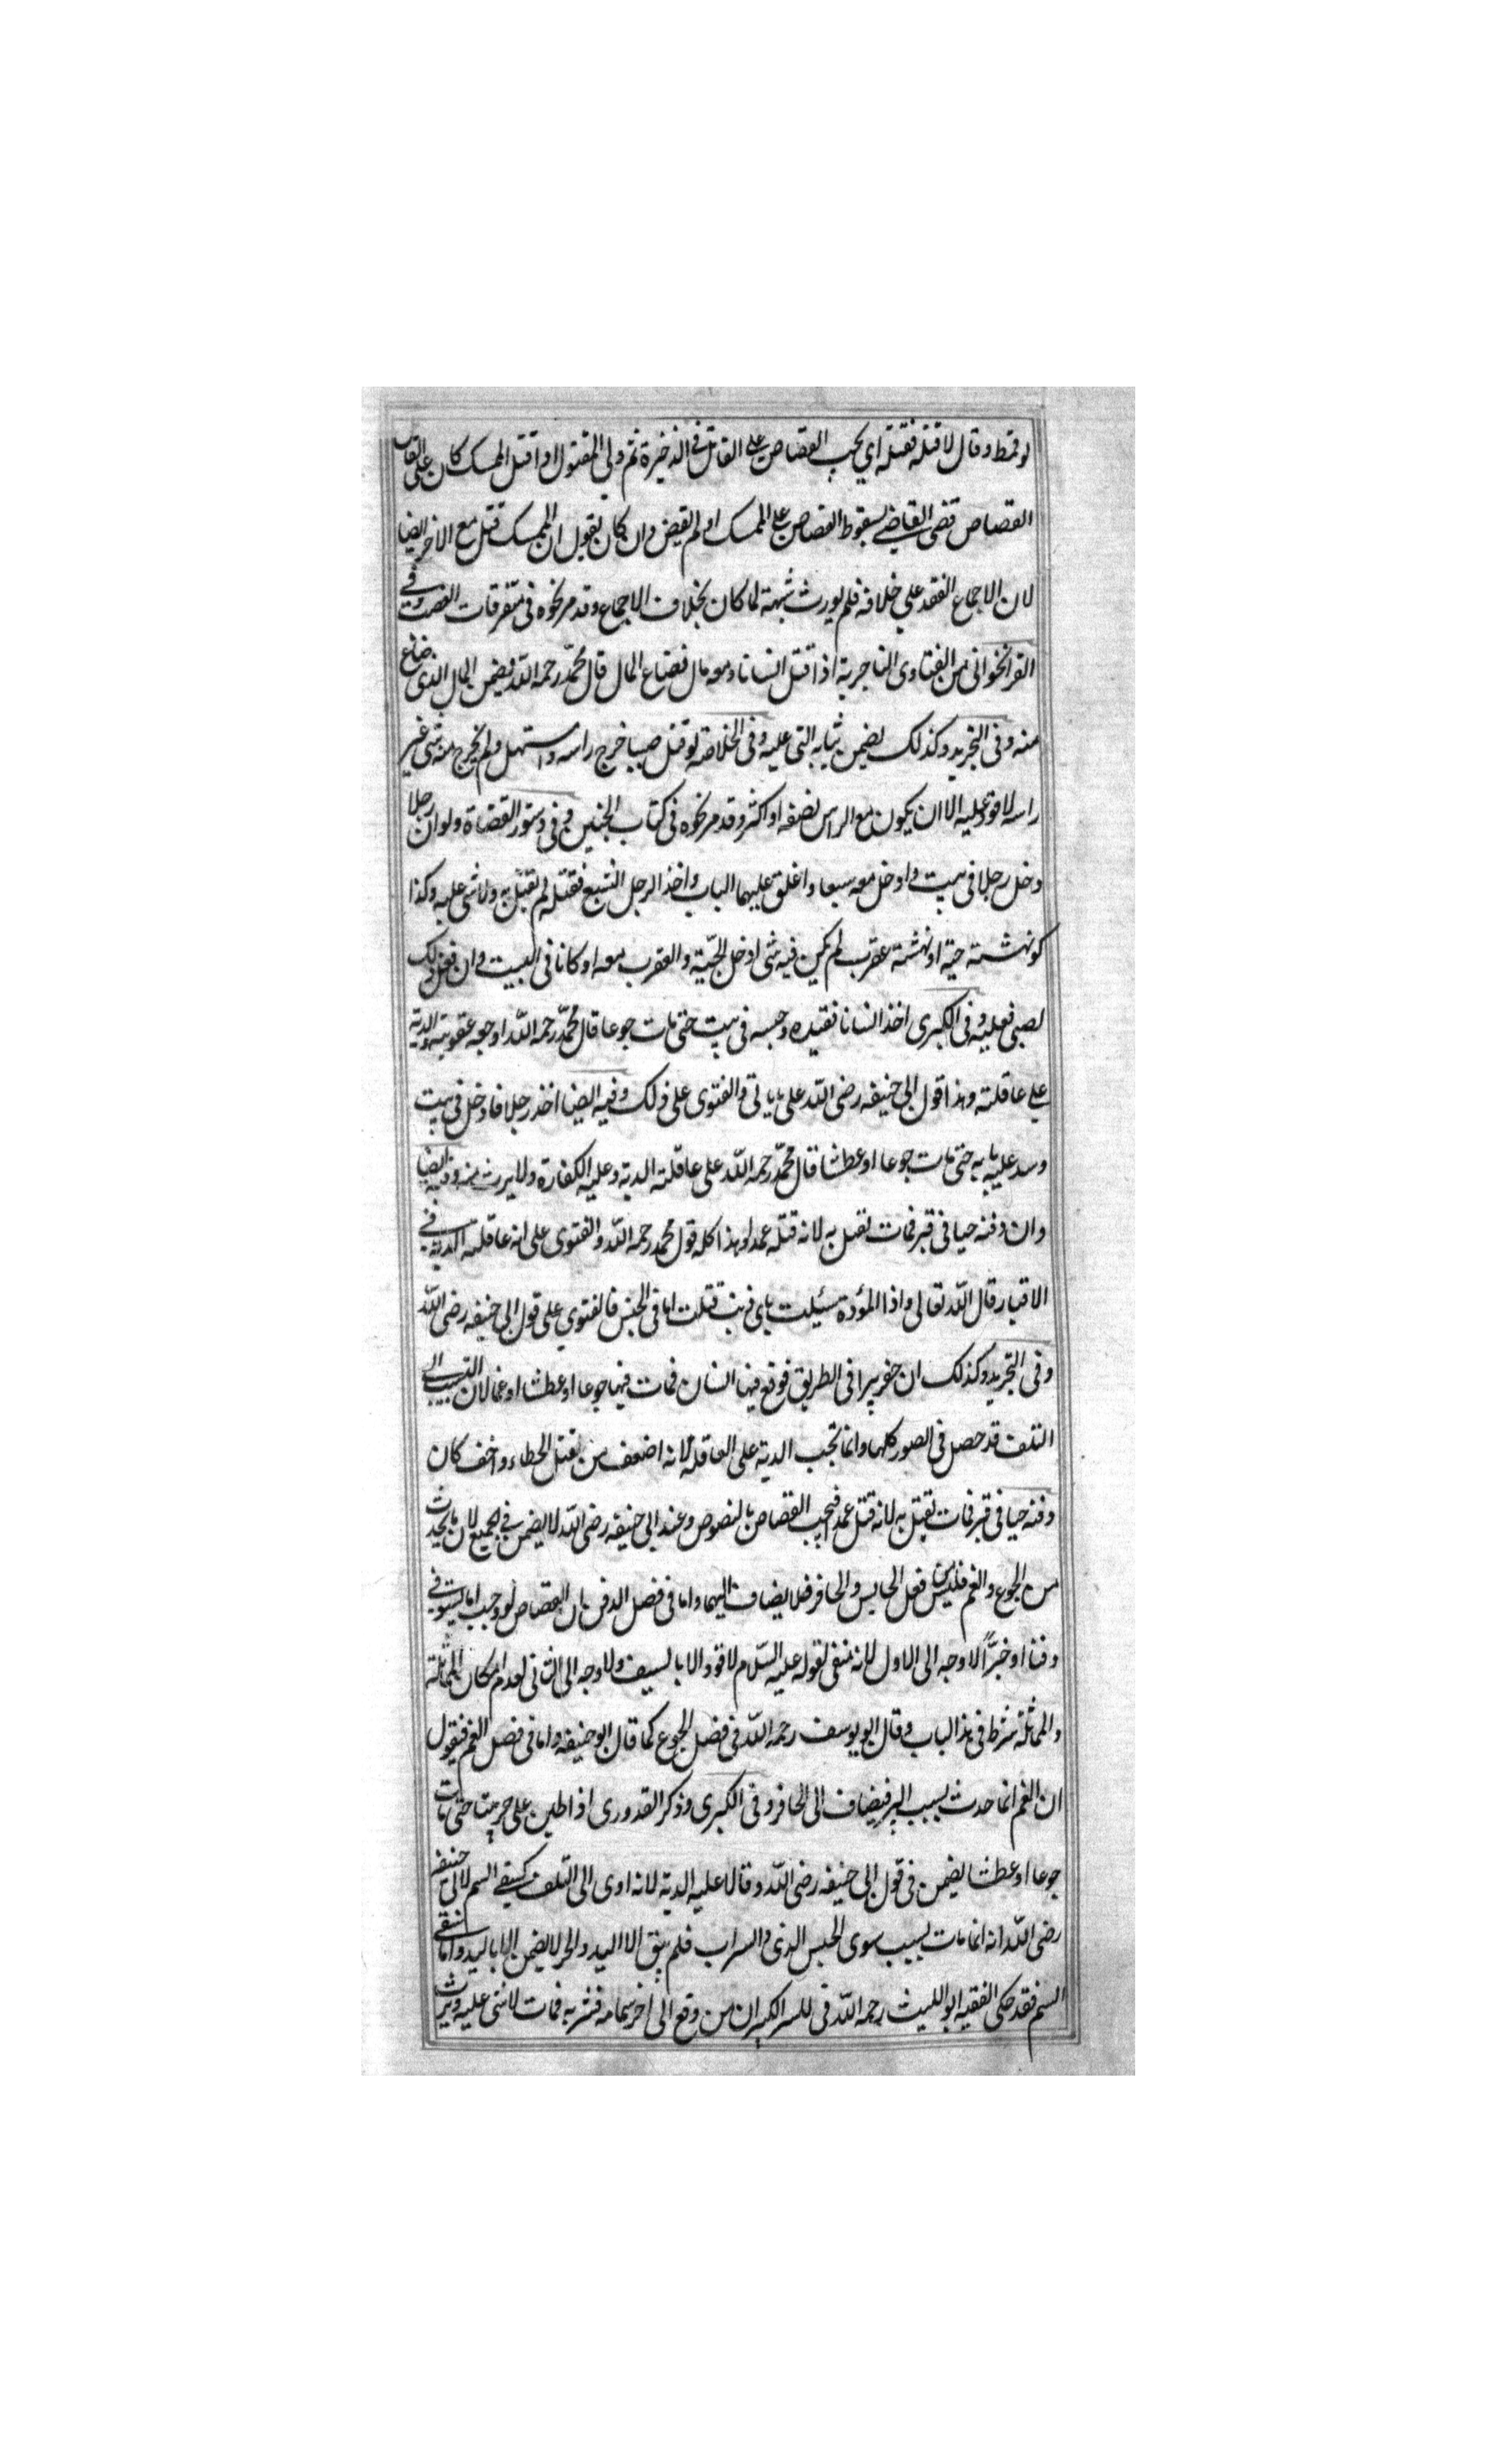 لو قمط وقال لاقتله فقتله اي يجب القصاص على القاتل في الذخيرة ثم ولي المقتول اذا قتل الممسك كان على القاتل
القصاص قضى القاضي بسقوط القصاص على الممسك او لم يقض وان كان يقول ان الممسك قتل مع الاخر ايضا
لان الاجماع انعقد على خلافه فلم يورث شبهة لما كان بخلاف الاجماع وقد مر نحوه في متفرقات الغصب وفي
القراخواني من الفتاوى التاجرية اذا قتل انسانا ومعه مال فضاع المال قال محمد رحمه الله يضمن المال الذي ضاع
منه وفي التجريد وكذلك يضمن ثيابه التي عليه وفي الخلاصة لو قتل صبيا خرج راسه واستهل ولم يخرج منه شي غير
راسه لا قود عليه الا ان يكون مع الراس نصفه او اكثر وقد مر نحوه في كتاب الجنين وفي دستور القضاة ولو ان رجلا
دخل رجلا في بيت وادخل معه سبعا واغلق عليهما الباب واخذ الرجل السبع فقتله لم يقتل به ولا شي عليه وكذا
لو نهشته حية او نهشته عقرب لم يكن فيه شي ادخل الحية والعقرب معه او كانا في البيت وان فعل ذلك
لصبي فعليه وفي الكبرى اخذ انسانا فقيده وحبسه في بيت حتى مات جوعا قال محمد رحمه الله اوجعه عقوبة والدية
على عاقلته وهذا قول ابي حنيفه رضى الله على ما ياتي والفتوى على ذلك وفيه ايضا اخذ رجلا فادخل في بيت
وسد عليه بابه حتى مات جوعا او عطشا قال محمد رحمه الله على عاقلته الدية وعليه الكفارة ولا يرث منه وفيه ايضا
وان دفنه حيا في قبر فمات يقتل به لانه قتله عمدا وهذا كله قول محمد رحمه الله والفتوى على انه عاقلته الدية في
الاقبار قال الله تعالى واذا المؤدة سئيلت باي ذنب قتلت اما في الحبس فالفتوى على قول ابي حنيفه رضى الله
وفي التجريد وكذلك ان حفر بيرا في الطريق فوقع فيها انسان فمات فيها جوعا او عطشا او غما لان التسبيب الى
التلف قد حصل في الصور كلها وانما تجب الدية على العاقلة لانه اضعف من قتل الخطاء واخف كان
دفنه حيا في قبر فمات يقتل به لانه قتل عمد فيجب القصاص بالنصوص وعند ابي حنيفه رضى الله لا يضمن في الجميع لان ما يحدث
من الجوع والغم فليس من فعل الحابس والحافر فلا يضاف اليهما واما في فصل الدفن بان القصاص لو وجب اما يستوفى
دفنا او حزا لا وجه الى الاول لانه منفى لقوله عليه السلام لا قود الا بالسيف ولا وجه الى الثاني لعدم امكان المماثلة
والمماثلة شرط في هذا الباب وقال ابو يوسف رحمه الله في فصل الجوع كما قال ابو حنيفه واما في فصل الغم فنقول
ان الغم انما حدث بسبب البير فيضاف الى الحافر وفي الكبرى وذكر القدوري اذا طين على حر بيتا حتى مات
جوعا او عطشا يضمن في قول ابي حنيفه رضى الله وقالا عليه الدية لانه ادى الى التلف كسقي السم لابي حنيفه
رضى الله انه انما مات بسبب سوى الحبس الذي والسراب فلم يبق الا اليد والحر لا يضمن الا باليد واما سقي
السم فقد حكى الفقيه ابو الليث رحمه الله في للسر الكبير ان من دفع الى اخر سما مه فشربه فمات لا شي عليه ويرث